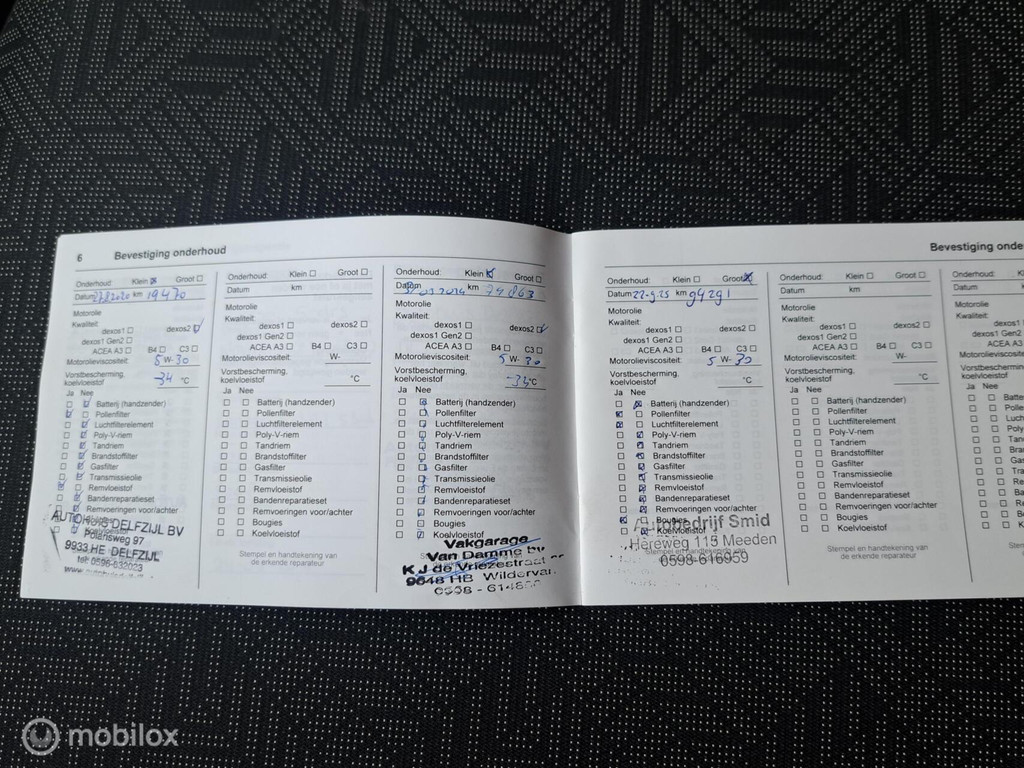 6 Bevestiging onderhoud
Onderhoud: Klein Groot
Datum 27.8.2020 km 19470
Motorolie
Kwaliteit:
dexos1 dexos2
dexos1 Gen2
ACEA A3 B4 C3
Motorolieviscositeit: 5 W- 30
Vorstbescherming,
koelvloeistof -34 °C
Ja Nee
Batterij (handzender)
Pollenfilter
Luchtfilterelement
Poly-V-riem
Tandriem
Brandstoffilter
Gasfilter
Transmissieolie
Remvloeistof
Bandenreparatieset
Remvoeringen voor/achter
Bougies
Koelvloeistof
AUTOHUIS DELFZIJL BV
Polarisweg 97
9933 HE DELFZIJL
tel: 0596-632023
Onderhoud: Klein Groot
Datum km
Motorolie
Kwaliteit:
dexos1 dexos2
dexos1 Gen2
ACEA A3 B4 C3
Motorolieviscositeit: W-
Vorstbescherming,
koelvloeistof °C
Ja Nee
Batterij (handzender)
Pollenfilter
Luchtfilterelement
Poly-V-riem
Tandriem
Brandstoffilter
Gasfilter
Transmissieolie
Remvloeistof
Bandenreparatieset
Remvoeringen voor/achter
Bougies
Koelvloeistof
Stempel en handtekening van
de erkende reparateur
Onderhoud: Klein Groot
Datum 2024 km 74863
Motorolie
Kwaliteit:
dexos1 dexos2
dexos1 Gen2
ACEA A3 B4 C3
Motorolieviscositeit: 5 W- 30
Vorstbescherming,
koelvloeistof °C
Ja Nee
Batterij (handzender)
Pollenfilter
Luchtfilterelement
Poly-V-riem
Tandriem
Brandstoffilter
Gasfilter
Transmissieolie
Remvloeistof
Bandenreparatieset
Remvoeringen voor/achter
Bougies
Koelvloeistof
Vakgarage
Van Damme bv
K J de Vriezestraat
9648 HB Wildervan
0598 - 614
Bevestiging onde
Onderhoud: Klein Groot
Datum 22-9-25 km 94291
Motorolie
Kwaliteit:
dexos1 dexos2
dexos1 Gen2
ACEA A3 B4 C3
Motorolieviscositeit: 5 W- 30
Vorstbescherming,
koelvloeistof °C
Ja Nee
Batterij (handzender)
Pollenfilter
Luchtfilterelement
Poly-V-riem
Tandriem
Brandstoffilter
Gasfilter
Transmissieolie
Remvloeistof
Bandenreparatieset
Remvoeringen voor/achter
Bougies
Koelvloeistof
Autobedrijf Smid
Hereweg 115 Meeden
0598-616959
Onderhoud: Klein Groot
Datum km
Motorolie
Kwaliteit:
dexos1 dexos2
dexos1 Gen2
ACEA A3 B4 C3
Motorolieviscositeit: W-
Vorstbescherming,
koelvloeistof °C
Ja Nee
Batterij (handzender)
Pollenfilter
Luchtfilterelement
Poly-V-riem
Tandriem
Brandstoffilter
Gasfilter
Transmissieolie
Remvloeistof
Bandenreparatieset
Remvoeringen voor/achter
Bougies
Koelvloeistof
Stempel en handtekening van
de erkende reparateur
Onderhoud: Kle
Datum
Motorolie
Kwaliteit:
dexos1
dexos1 Gen2
ACEA A3
Motorolieviscositeit:
Vorstbescherming,
koelvloeistof
Ja Nee
Batte
Polle
Luch
Poly
Tand
Bran
Gas
Tran
Rem
Ban
Rem
Bou
Koe
Stempe
de e
mobilox